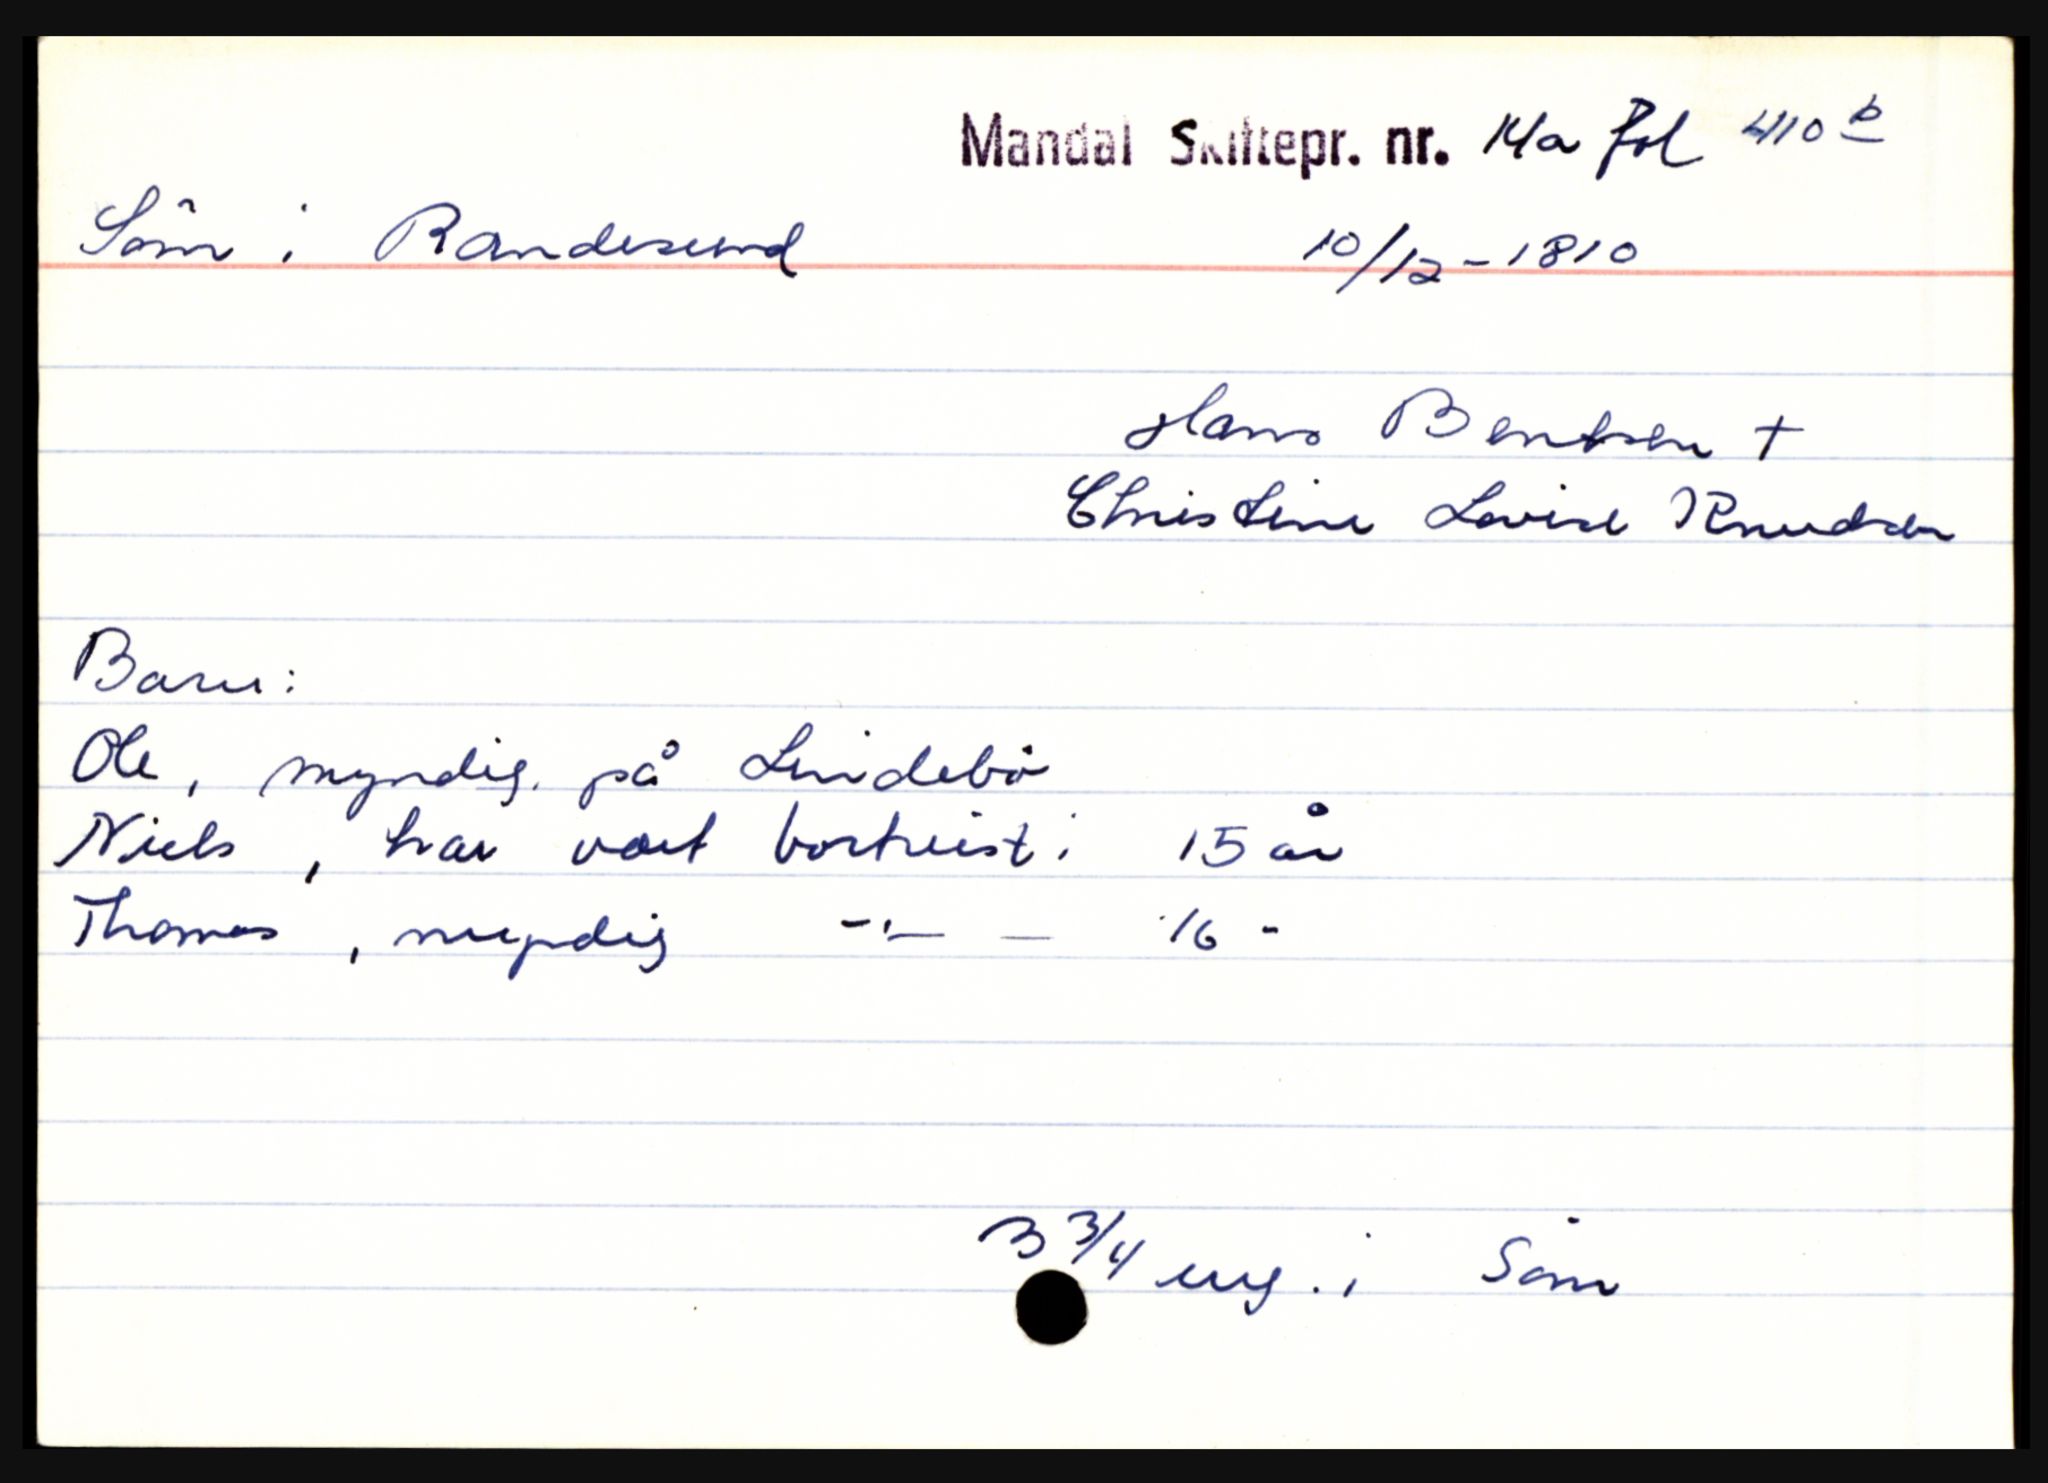 Mandal Skiftepr. nr. 14a fol 410 b
Søm i Randesund 10/12-1810
Hans Bentsen +
Christine Lovise Knudsen
Barn:
Ole, myndig. på Lindebö
Niels, har vært bortreist i 15 år
Thomas, myndig -"- — 16 -
3 3/4 eng. i Søm